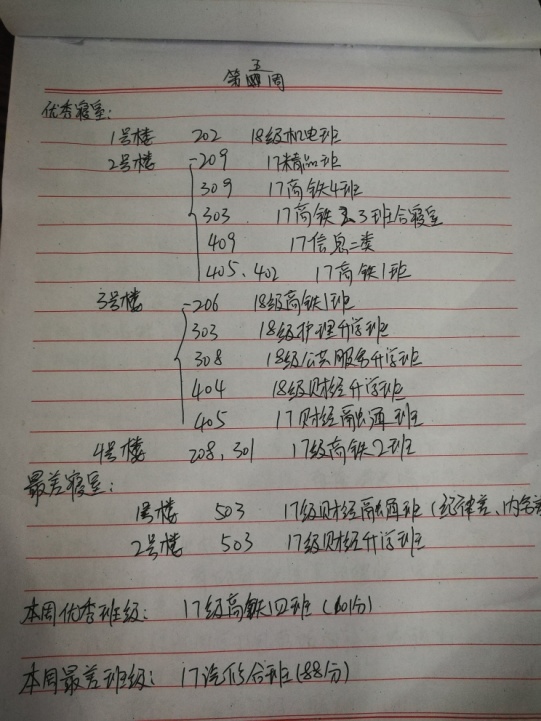 第五周
优秀寝室:
1号楼 202 18级机电班
2号楼 -209 17精品班
309 17高铁4班
303 17高铁 3班合寝室
409 17信息二类
405、402 17高铁1班
3号楼 -206 18级高铁1班
303 18级护理升学班
308 18级公共服务升学班
404 18级财经升学班
405 17财经融通班
4号楼 208,301 17级高铁2班
最差寝室:
1号楼 503 17级财经融通班(纪律差、内务差
2号楼 503 17级财经升学班
本周优秀班级: 17级高铁四班(101分)
本周最差班级: 17汽修合班(88分)